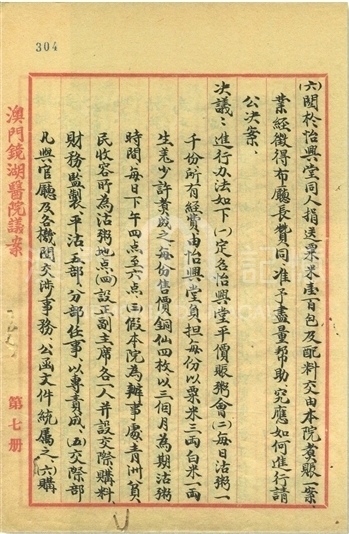 304
(六)関於怡興堂同人捐送粟米壹百包及配料交由本院煑賑一案、
業經徵得布廳長贊同、准予盡量帮助、究應如何進行請
公决案、
决議：進行办法如下(一)定名怡興堂平價賑粥会(二)每日沽粥一
千份所有經費、由怡興堂負担每份以粟米三両白米一両
生羗少許煑成之、每份售價銅仙四枚以三個月為期沽粥
時間、每日下午四点至六点、(三)假本院為辦事處青洲貧
民收容所為沽粥地点(四)設正副主席各一人并設交際購料
財務監製平沽五部、分部任事、以專責成、(五)交際部
凡與官廳及各機関交涉事務、公函文件統属之、(六)購
澳門鏡湖醫院議案
第七册